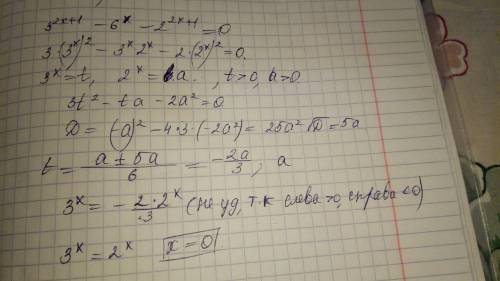 3^{2x+1} - 6^x - 2^{2x+1} = 0
3·(3^x)^2 - 3^x 2^x - 2·(2^x)^2 = 0.
3^x = t, 2^x = a, t>0, a>0
3t^2 - ta - 2a^2 = 0
D = (-a)^2 - 4·3·(-2a^2) = 25a^2 √D = 5a
t = \frac{a ± 5a}{6} = \frac{-2a}{3}; a
3^x = - \frac{2·2^x}{3} (не уд, т.к слева >0, справа <0)
3^x = 2^x x = 0